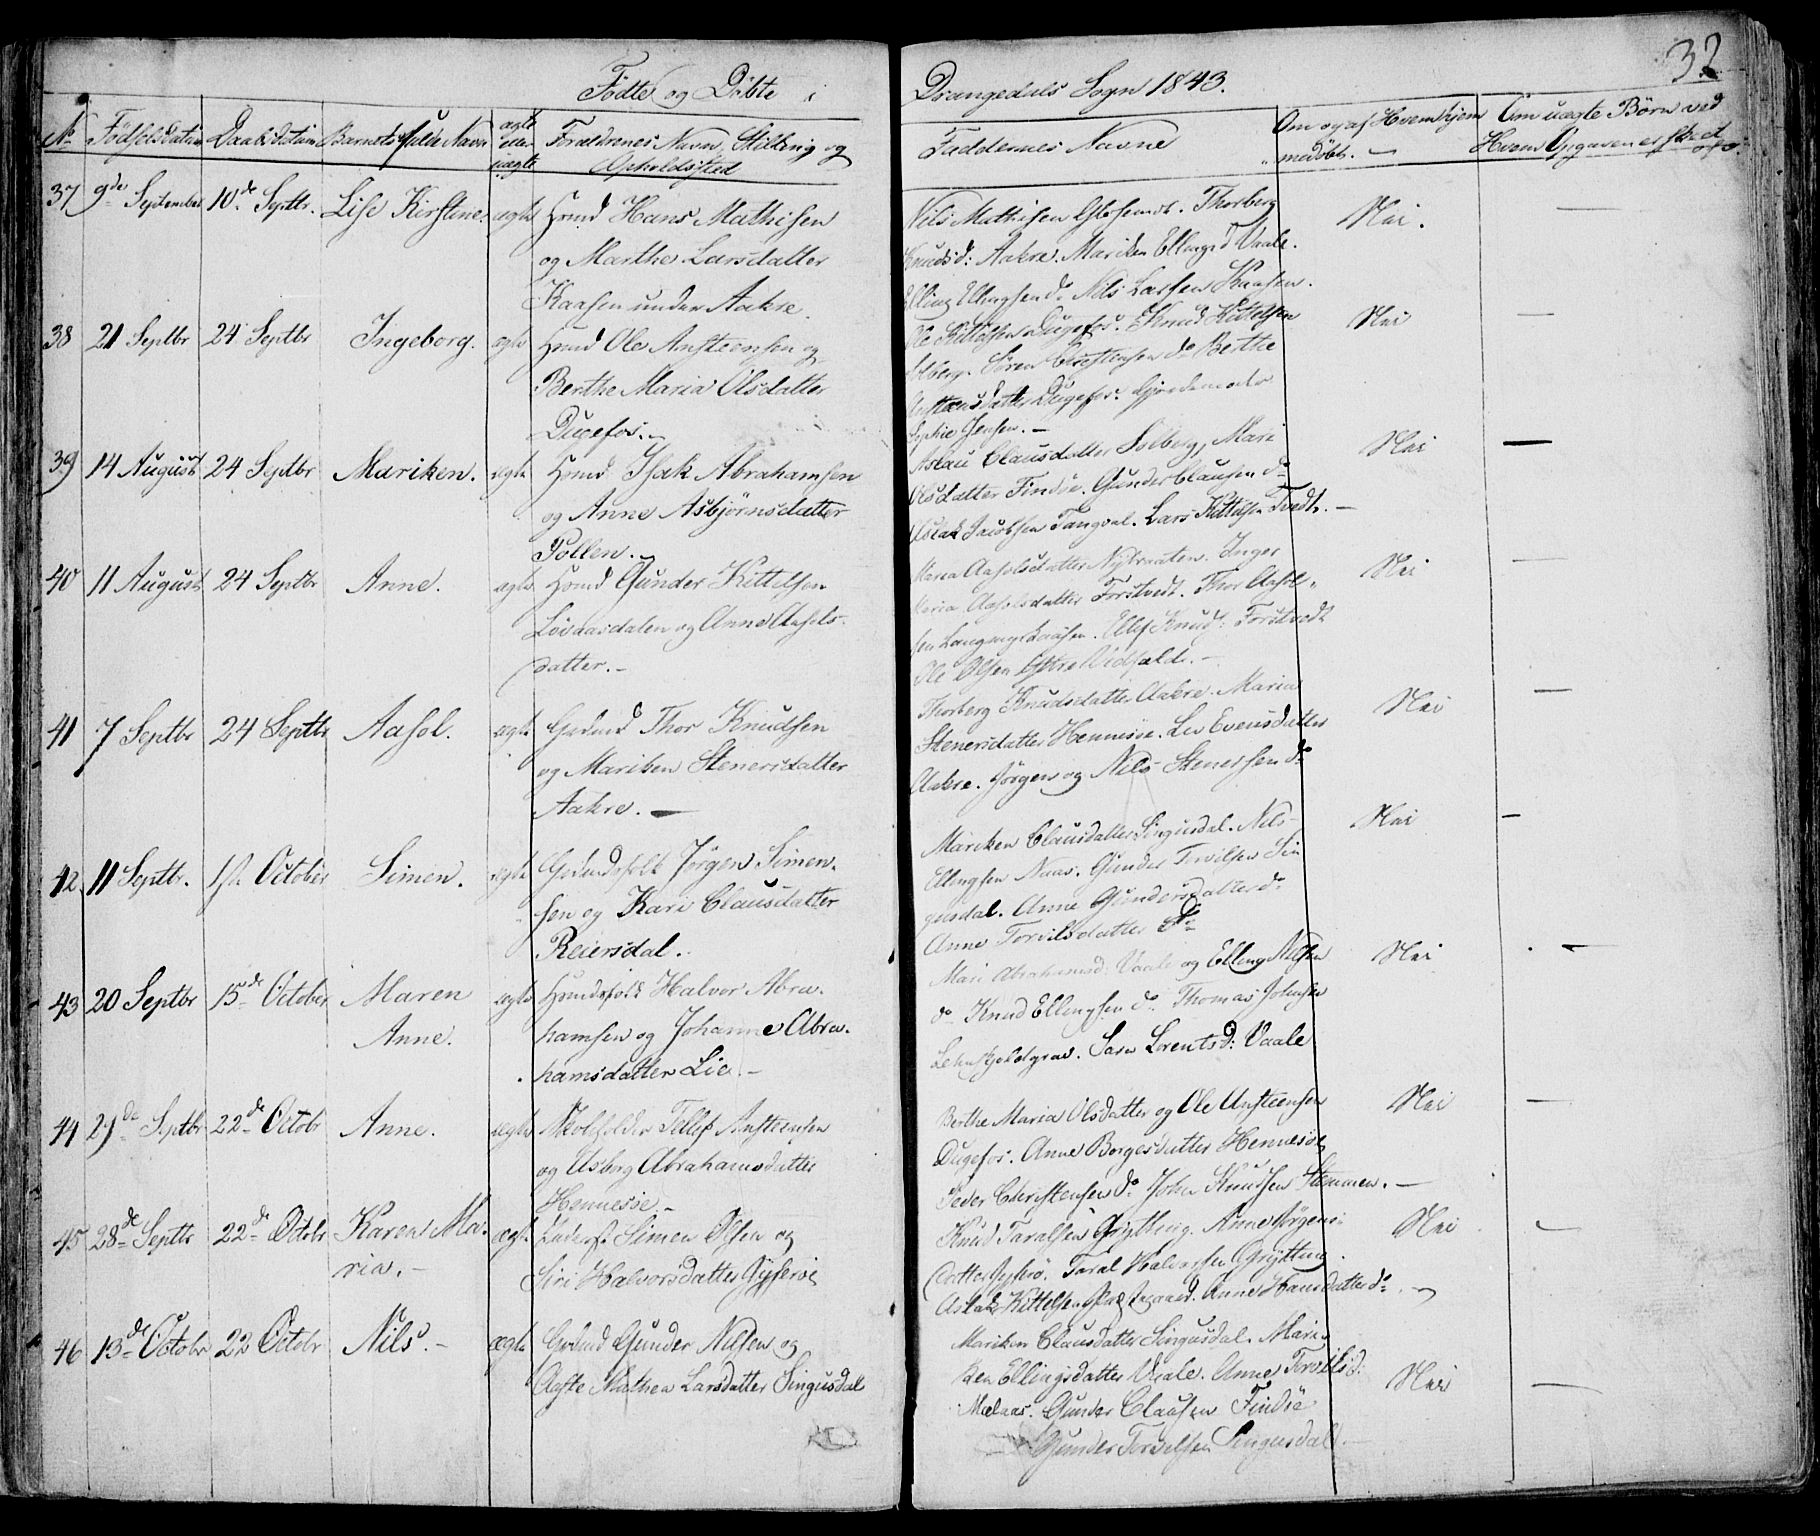 32
Födte og Döbte i Drangedals Sogn 1843.
No Födselsdatum Daabsdatum Barnets fulde Navn ægte eller uægte Forældrenes Navn, Stilling og Opholdssted
Faddernes Navne
Om og af Hvem hjemmedöbt. Om uægte Børn ved Hvem Opgaven er skeet
37 9de September 10de Septbr. Lise Kirstine. ægte Huusmd Hans Mathisen
og Marthe Larsdatter
Kaasen under Aakre.
Nils Mathisen Thorberg
Knudsd: Aakre. Mariken Ellingsd Vaale.
Elling Ellingsen do Nils Larsen Kaasen.
Nei. —
38 21 Septbr 24 Septbr Ingeborg. ægte Huusmd Ole Ansteensen og
Berthe Maria Olsdatter
Dugefos.
Ole Kittelsen Dugefos. Knud Kittelsen
Solberg. Sören Christensen do Berthe
Ansteensdatter Dugefos. Gjordemoder
Sophie Jensen. —
Nei —
39 14 August 24 Septbr Mariken. ægte Huusmd Isak Abrahamsen
og Anne Asbjørnsdatter
Pollen.
Aslau Clausdatter Solberg, Mari
Olsdatter Findöe. Gunder Clausen do
Aslak Jacobsen Tangval. Lars Kittelsen Tvedt. —
Nei —
40 11 August 24 Septbr Anne. ægte Huusmd Gunder Kittelsen
Lövaasdalen og Anne Aasols-
datter. —
Maria Aasolsdatter Nybraaten. Inger
Maria Aasolsdatter Forstvedt. Thor Aasol-
sen Ellef Knuds: Forstvedt
Ole Olsen
Nei —
41 7 Septbr 24 Septbr Aasol. ægte Gaardmd Thor Knudsen
og Mariken Stenersdatter
Aakre. —
Thorberg Knudsdatter Aakre. Maria
Stenersdatter Hennesöe. Liv Evensdatter
Aakre. Jörgen og Nils Stenersen do
Nei —
42 11 Septbr. 1ste October Simen. ægte Gaardmdsfolk Jörgen Simen-
sen og Kari Clausdatter
Reiersdal.
Mariken Clausdatter Singusdal. Nils
Ellingsen Naas. Gunder Torvilsen Sin
gusdal. Anne Gundersdatter do
Anne Torvilsdatter do
Nei —
43 20 Septbr 15de October Maren
Anne. ægte Huusmdsfolk Halvor Abra-
hamsen og Johanne Abra-
hamsdatter Lie. —
Mari Abrahamsd: Vaale og Elling Nilsen
do Knud Ellingsen do. Thomas Johnsen
Sara Lorentsd: Vaale
Nei —
44 29de Septbr 22de Octobr Anne. ægte Tellef Ansteensen
og Asberg Abrahamsdatter
Hennesöe. —
Berthe Maria Olsdatter og Ole Ansteensen
Dugefos. Anne Borgesdatter Hennesöe
Peder Christensen do John Knudsen Stemmen. —
Nei —
45 28de Septbr 22de Octobr Karen Ma-
ria. — ægte. Simen Olsen og
Siri Halvorsdatter
Knud Taralsen Grytting. Anne Jörgens-
datter Taral Halvorsen Grytting
Aslak Kittelsen Anne Hansdatter do —
Nei —
46 13de Octobr 22 Octobr Nils. — ægte Gaardmd Gunder Nilsen og
Aaste Mathea Larsdatter Singusdal
Mariken Clausdatter Singusdal. Mari-
ken Ellingsdatter Vaale. Anne Torvilsd:
Mælaas. Gunder Clausen Findöe
Gunder Torvilsen Singusdal. —
Nei —